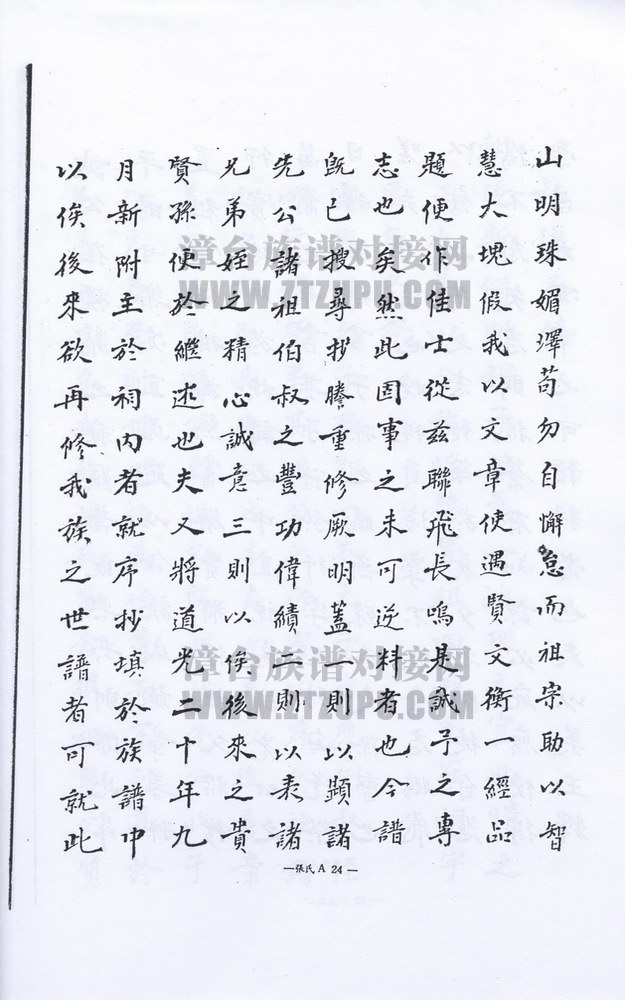 山明珠媚澤苟勿自懈怠而祖宗助以智
慧大塊假我以文章使遇賢文衡一經品
題便作佳士從兹聯飛長鳴是誠予之專
志也矣然此固事之未可逆料者也今譜
既已搜尋抄謄重修厥明蓋一則以顯諸
先公諸祖伯叔之豐功偉績二則以表諸
兄弟姪之精心誠意三則以俟後來之貴
賢孫便於繼述也夫又將道光二十年九
月新附主於祠内者就序抄填於族譜中
以俟後來欲再修我族之世譜者可就此
—張氏A 24—
漳台族谱对接网
WWW.ZTZUPU.COM
漳台族谱对接网
WWW.ZTZUPU.COM